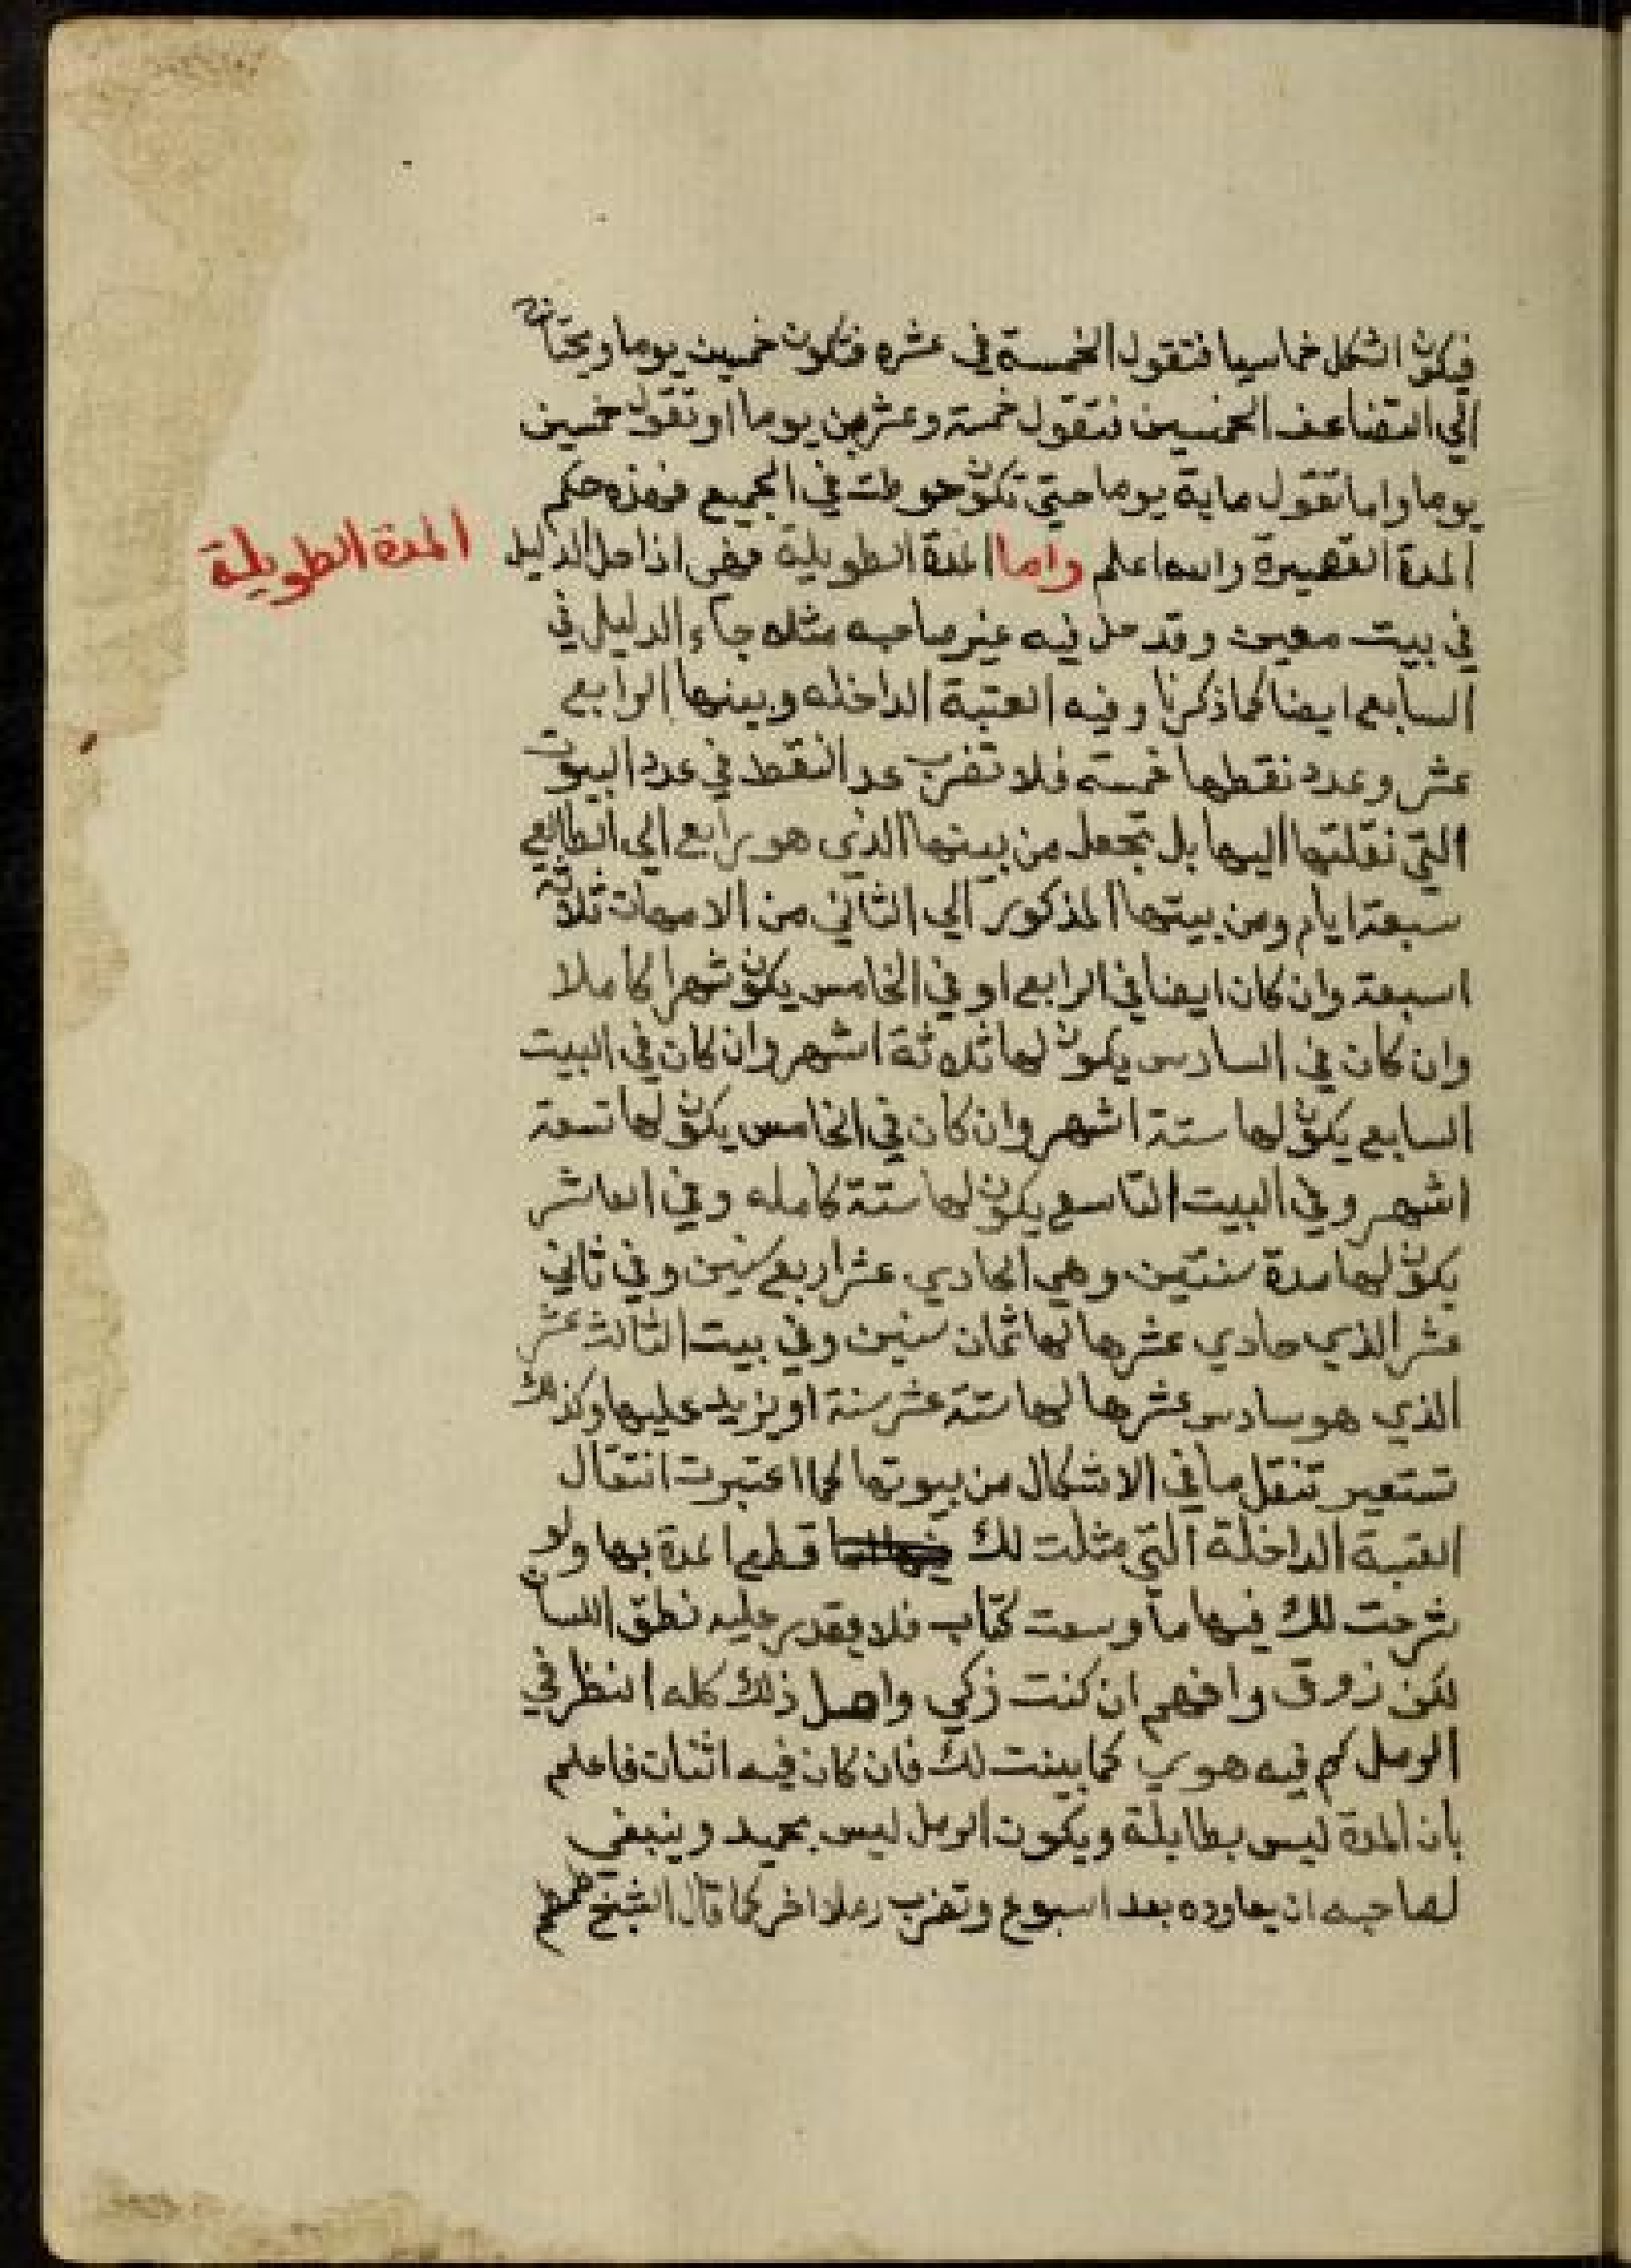 فيكون الشكل خماسيا فتقول الخمسة في عشره فتكون خمسين يوما ويحتاج
الي التضاعف الخمسين فتقول خمسة وعشرين يوما او تقول خمسين
يوما واما تقول ماية يوما حتي تكون حوطت في الجميع فهذه حكم
المدة القصيرة والله اعلم واما المدة الطويلة فهي اذا حل الدليل
المدة الطويلة
في بيت معين وقد حل فيه غير صاحبه مثله جاء الدليل في
السابع ايضا كما ذكرنا وفيه العتبة الداخله وبينها الرابع
عشر وعدد نقطها خمسه فلا تضرب عد النقط في عدد البيوت
التي نقلتها اليها بل تجعل من بيتها الذي هو رابع الي الطالع
سبعة ايام ومن بيتها المذكور الي الثاني من الامهات ثلاثة
اسبعة وان كان ايضا في الرابع او في الخامس يكون شهرا كاملا
وان كان في السادس يكون لها ثلاثة اشهر وان كان في البيت
السابع يكون لها ستة اشهر وان كان في الخامس يكون لها تسعة
اشهر وفي البيت التاسع يكون لها ستة كامله وفي العاشر
يكون لها مدة سنتين وهي الحادي عشر اربع سنين وفي ثاني
عشر الذي حادي عشرها لها ثمان سنين وفي بيت الثالث عشر
الذي هو سادس عشرها لها ستة عشر سنة او يزيد عليها وكذلك
تستعير تنقل ما في الاشكال من بيوتها كما اعتبرت انتقال
العتبة الداخلة التي مثلت لك قطع المدة بها ولو
شرحت لك فيها ما وسعت كتاب فلا يقدر عليه نطق اللسان
لكن ذوق وافهم ان كنت زكي واصل ذلك كله انظر في
الرمل كم فيه هوي كما بينت لك فان كان فيه اثنان فاعلم
بان المدة ليس بطايلة ويكون الرمل ليس بحميد وينبغي
لصاحبه ان يعاوده بعد اسبوع وتضرب رملا اخر كما قال الشيخ